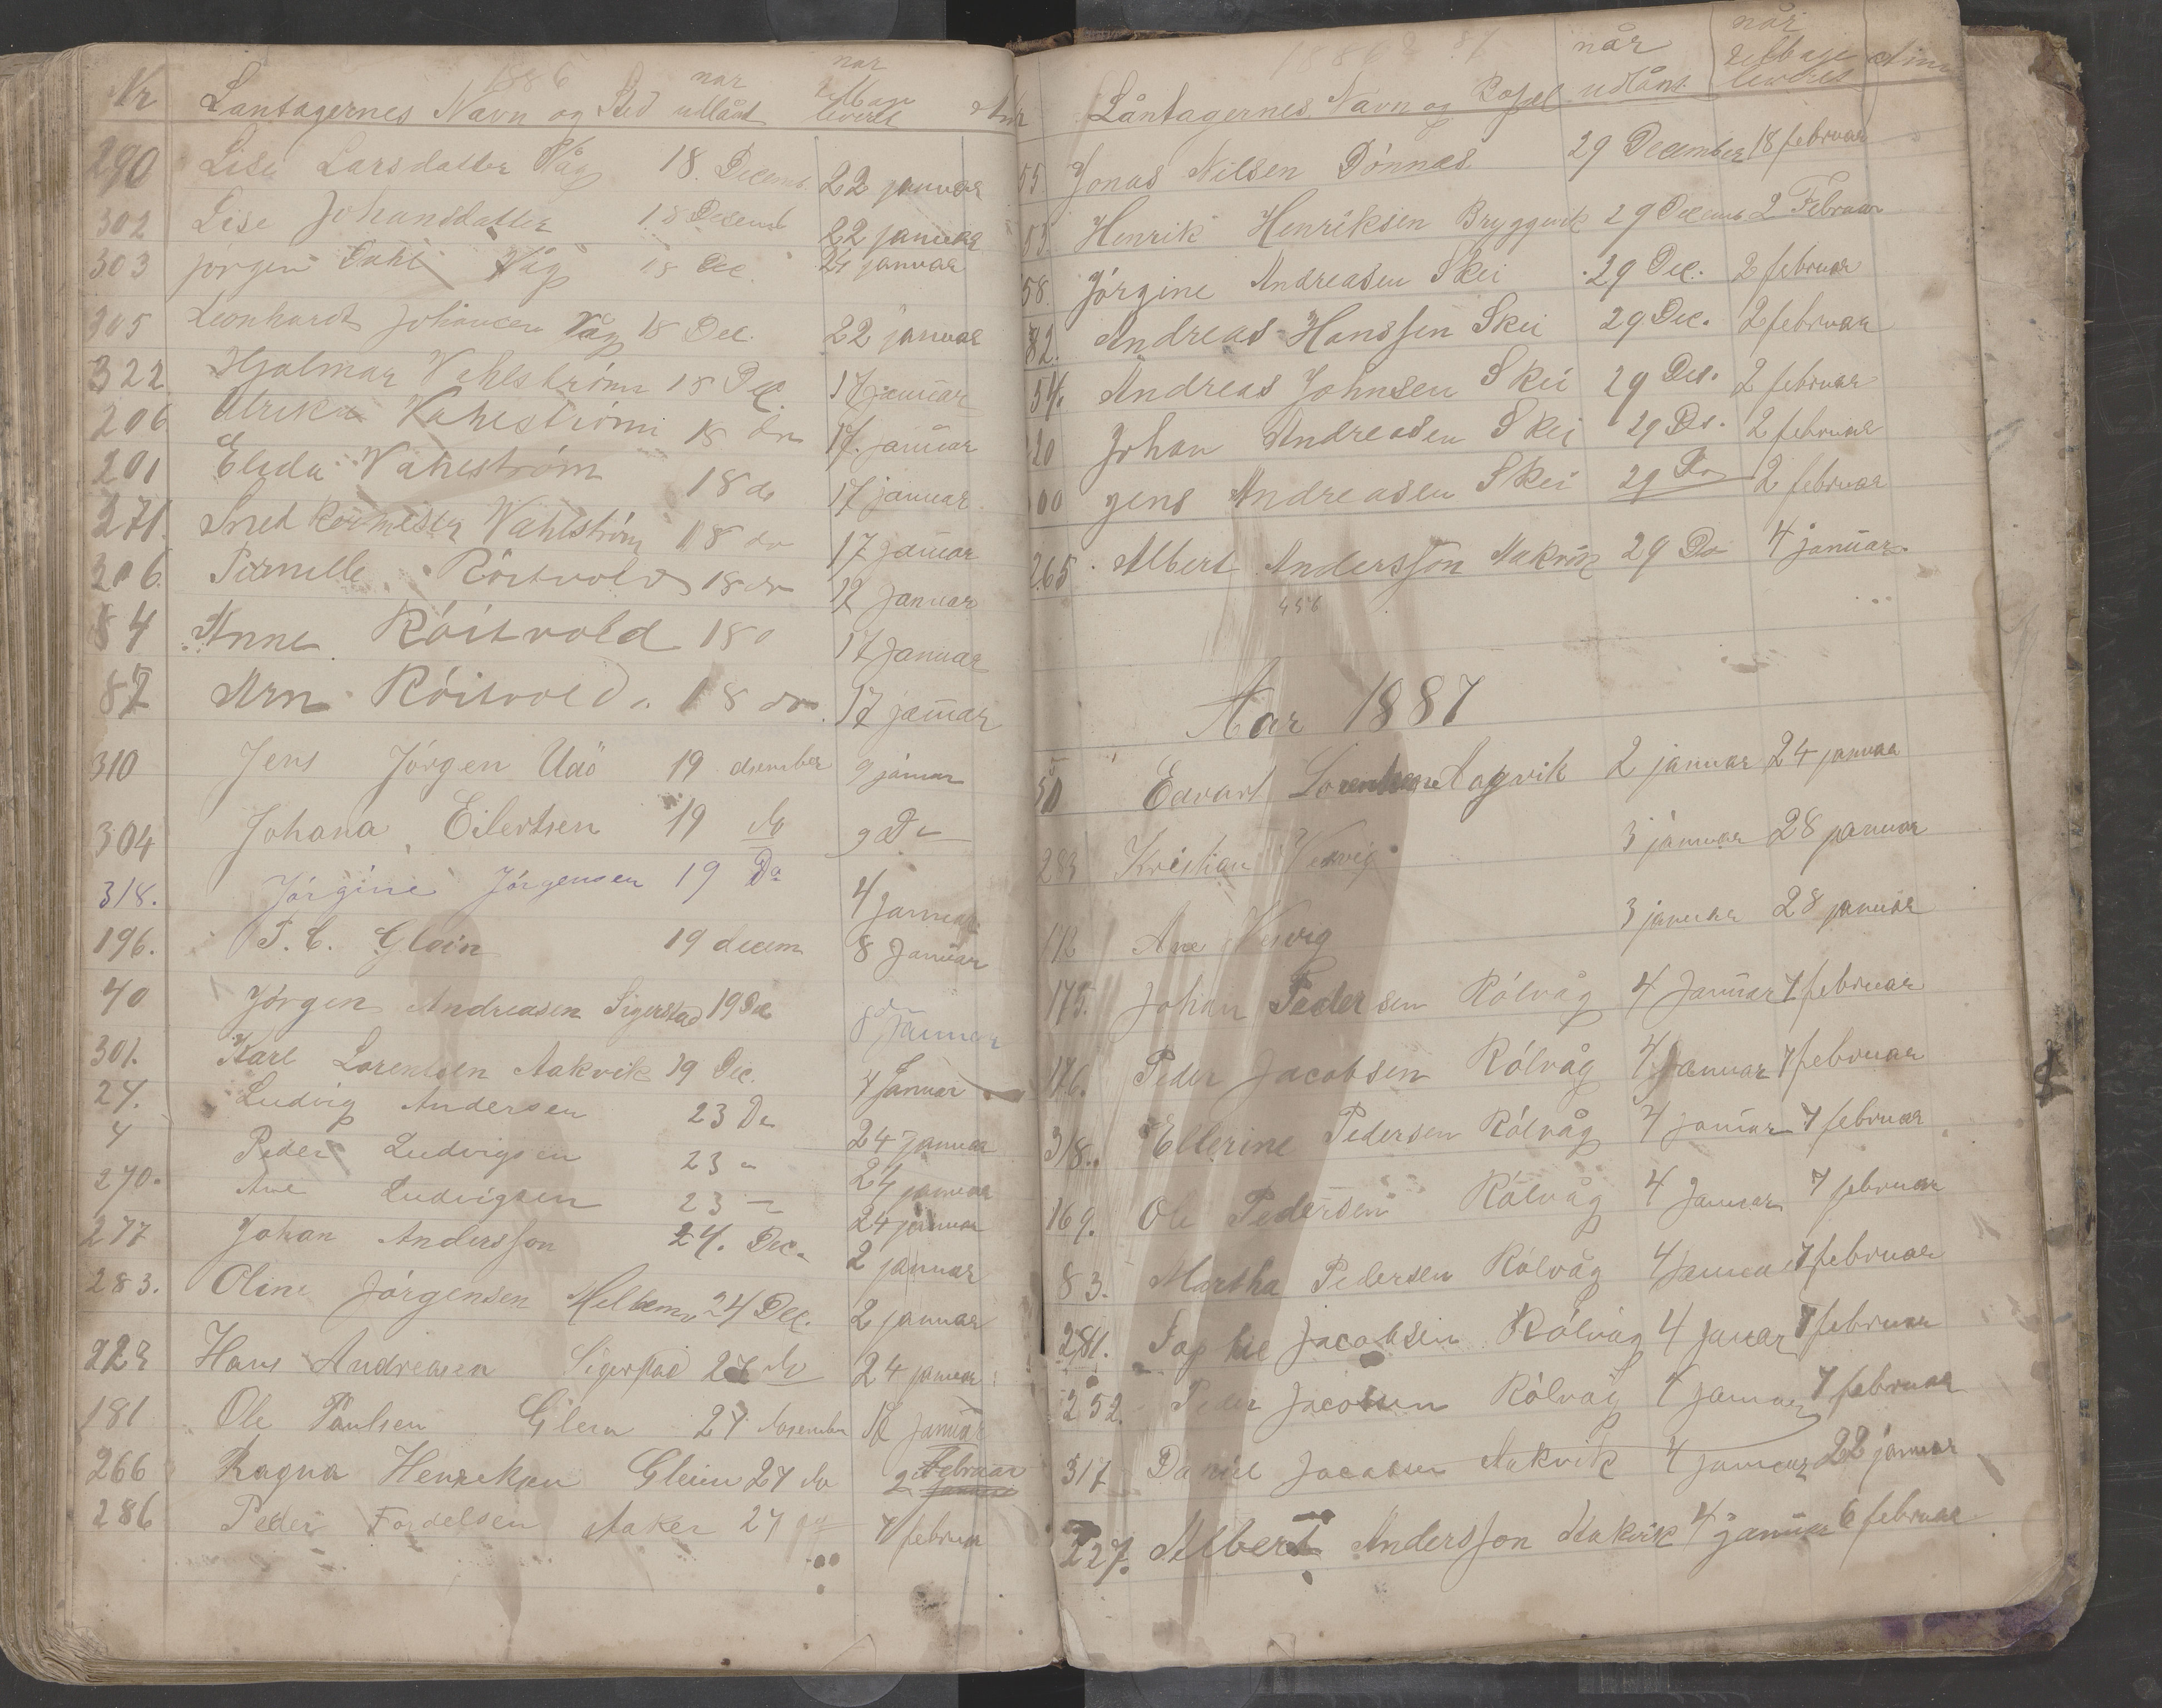 1886
Nr Låntagernes Navn og Sted når udlånt når tilbage leveret
290 Lise Larsdatter Våg 18. Decemb. 22 januar
302 Lise Johansdatter 18 Desemb 22 januar
303 Jørgen Dahl Våg 18 Dec. 24 januar
305 Leonhardt Johansen Våg 18 Dec. 22 januar
322 Hjalmar Vahlström 18 Dec. 17 januar
206 Ulrika Vahlström 18 do 17 januar
201 Elida Vahlström 18 do 17 januar
271. Snedkermester Vahlström 18 do 17 januar
206. Pernille Röitvold 18 do 12 januar
84 Anne Röitvold 18 17 januar
87 Arn Róitvold 18 do 17 januar
310 Jens Jörgen Udö 19 desember 9 januar
304 Johana Eilertsen 19 do 9 Do
318. Jörgine Jörgensen 19 Do 4 januar
196. P. C. Glein 19 decem 8 Januar
40 Jörgen Andreasen Sigerstad 19 Dec 8 Januar
301. Karl Lorentsen Aakvik 19 Dec. 4 Januar
24. Ludvig Andersen 23 Do 24 januar
4 Peder Ludvigsen 23 " 24 januar
270. Ane Ludvigsen 23 " 24 januar
277 Johan Andersson 24. Dec. 2 januar
283. Oline Jörgensen 24 Dec. 2 januar
223 Hans Andreasen Sigerstad 27 do 24 januar
181 Ole Paulsen Glein 27 November 12 januar
266 Ragna Henriksen Glein 27 do 2 Februar
286 Peder Fordelsen Aaker 27 7 februar
1886 87
Låntagernes Navn og Bopæl når udlånt når tilbage leveret
55 Jonas Nilsen Dönnes 29 December 18 februar
53 Henrik Henriksen Bryggvik 29 Decemb 2 Februar
58. Jörgine Andreasen Skei 29 Dec. 2 februar
82. Andreas Hanssen Skei 29 Dec. 2 februar
54. Andreas Johnsen Skei 29 Des. 2 februar
20 Johan Andreasen Skei 29 Ds. 2 februar
00 Jens Andreasen Skei 29 Do 2 februar
265. Albert Andersson Aakvik 29 Do 4 januar.
456
Aar 1887
50 Edvart Lorentsen Aagvik 2 januar 24 januar
283 Kristian Vesvig 3 januar 28 januar
112 Ane Vesvig 3 januar 28 januar
175. Johan Pedersen Rólvåg 4 Januar 7 februar
176. Peder Jacobsen Rólvåg 4 Januar 7 februar
318. Ellerine Pedersen Rólvåg 4 januar 7 februar
169. Ole Pedersen Rólvåg 4 Januar 7 februar
83. Martha Pedersen Rólvåg 4 Januar 7 februar
281. Sophie Jacobsen Rólvåg 4 januar 7 februar
252. Peder Jacobsen Rólvåg 4 januar 7 februar
317 Daniel Jacobsen Aakvik 4 januar 22 januar
227. Albert Andersson Aakvik 4 januar 6 februar